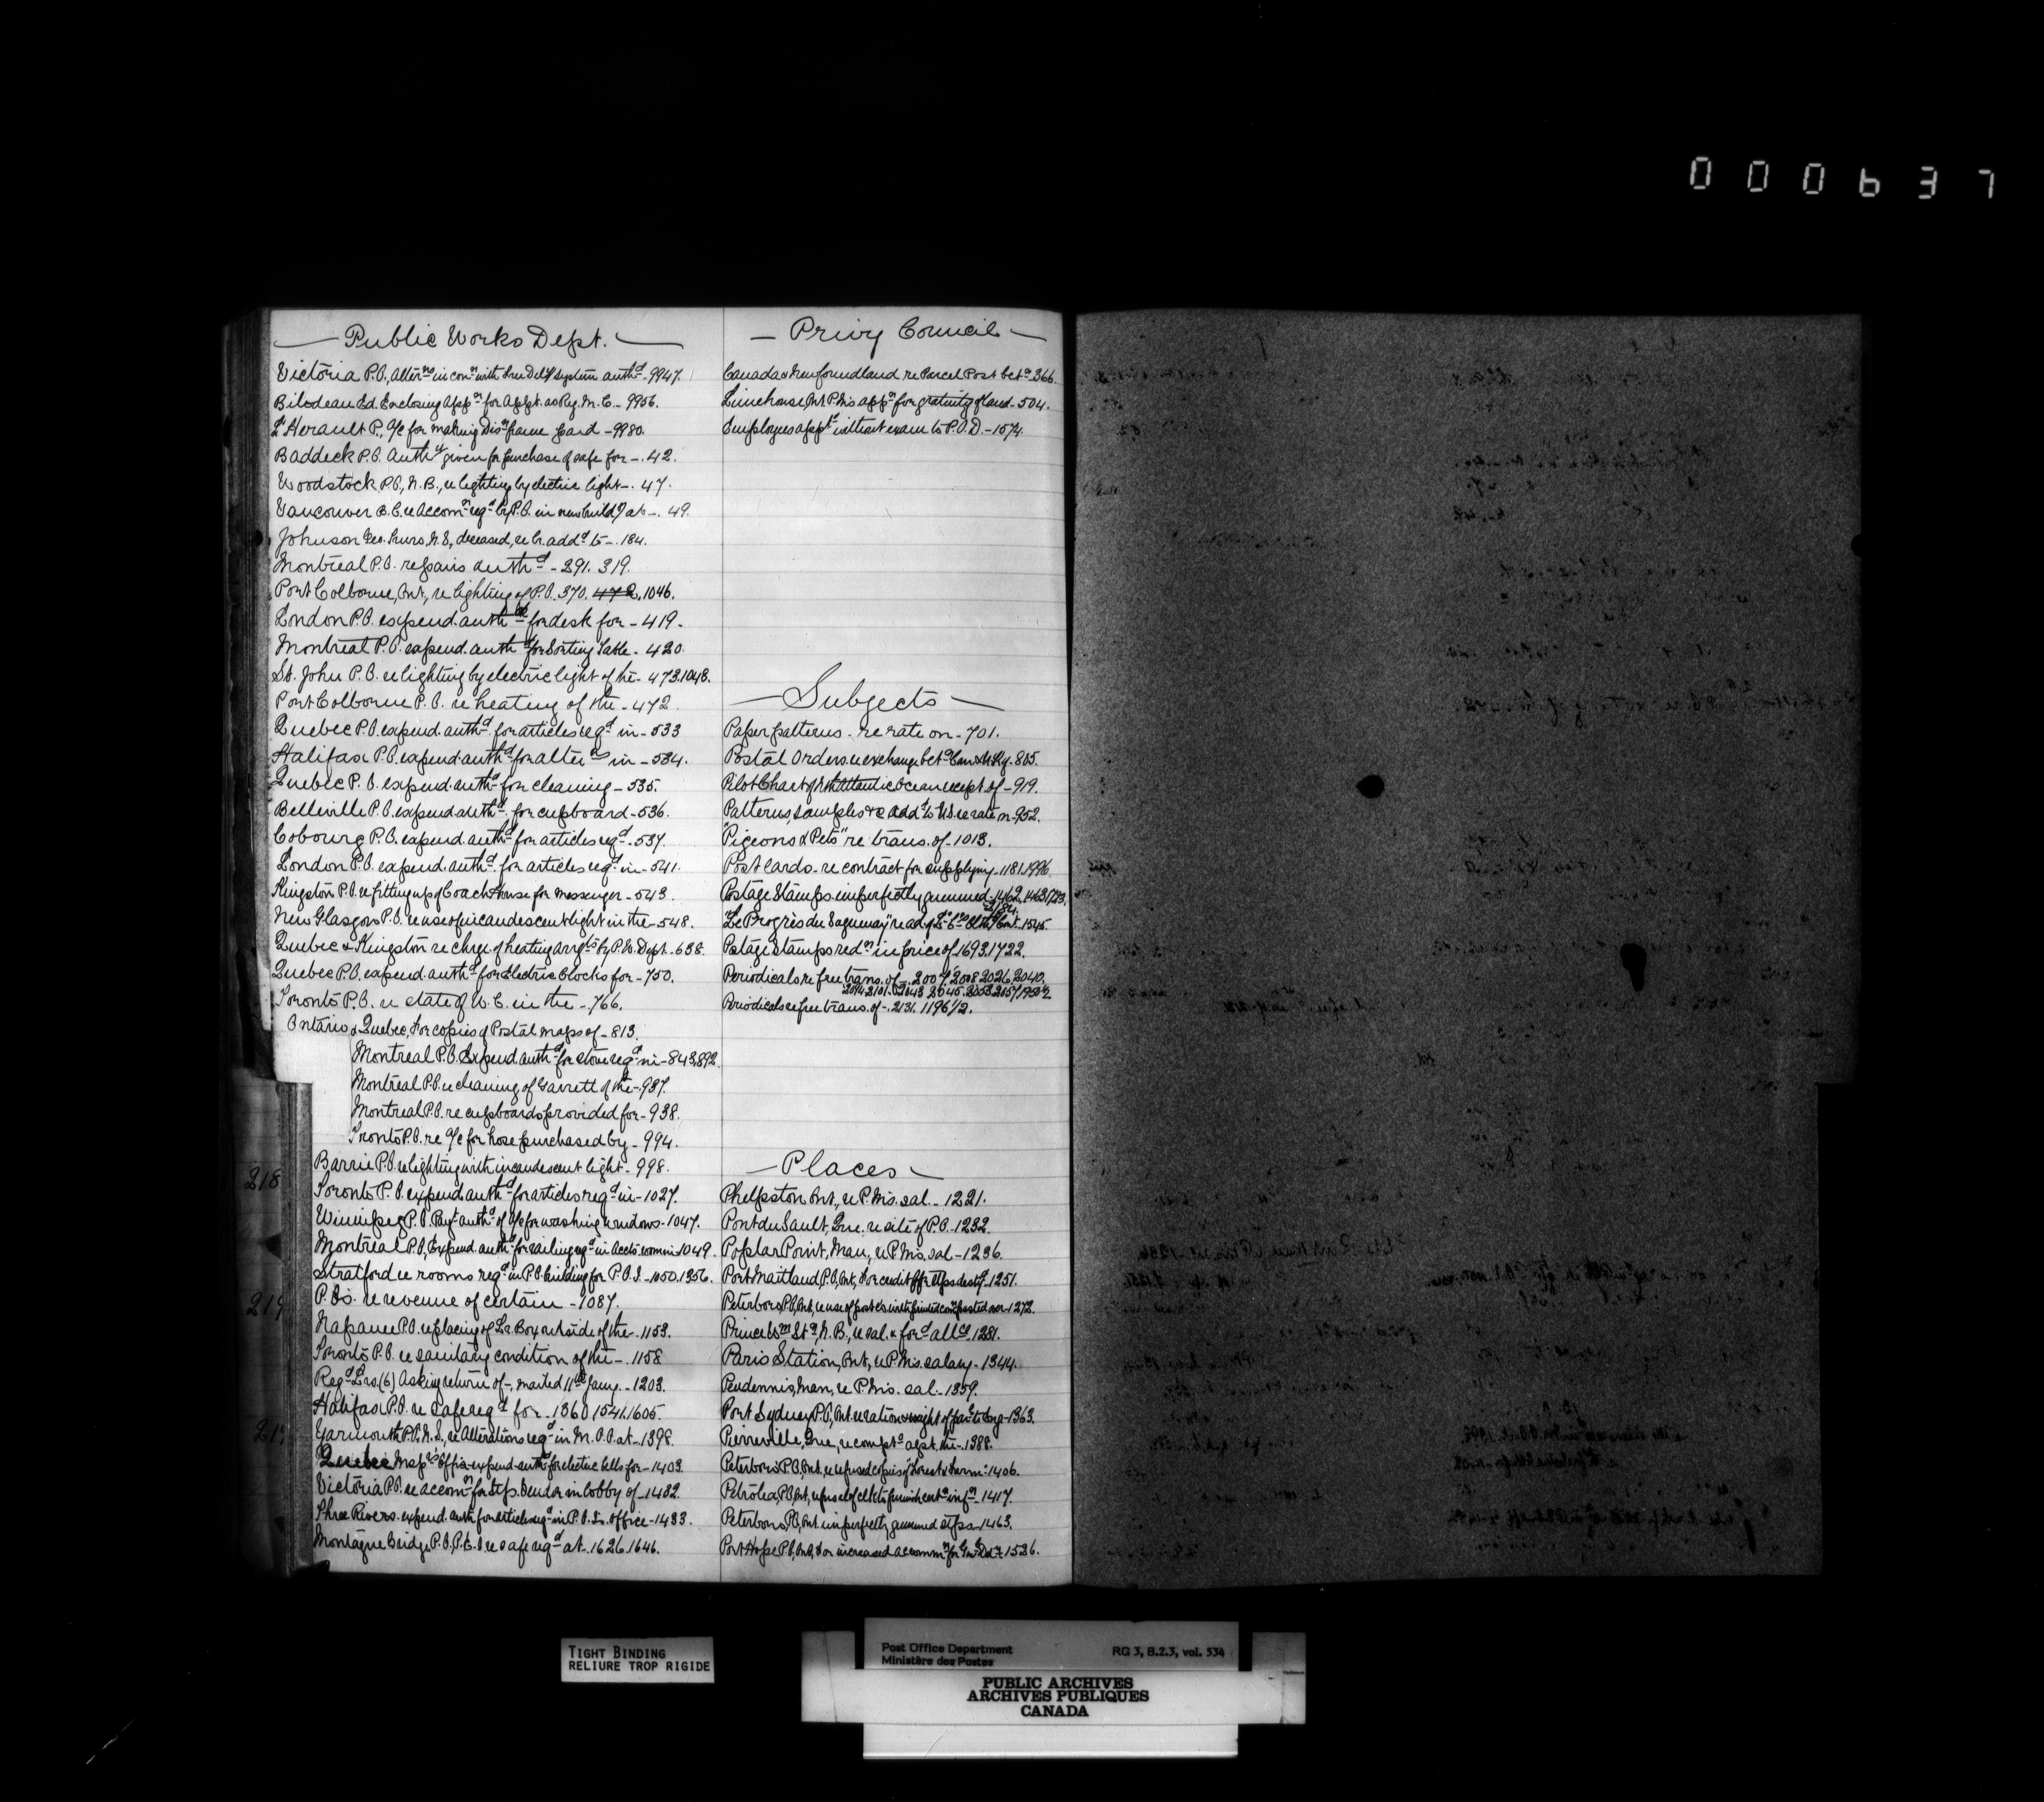 000637
— Public Works Dept. —
Victoria P.O., alter^ns in con^n with Free Del^y system auth^d - 9947.
Bilodeau Ed. Enclosing app^n for appt. as Ry. M. C. - 9956.
L'Herault P., a/c for making Dis^n frame paid - 9980.
Baddeck P.O. auth^y given for purchase of safe for - 42.
Woodstock P.O., N.B., re lighting by electric light - 47.
Vancouver B.C. re accom^n req^d by P.O. in new build^g at - 49.
Johnson Geo. Truro, N.S., deceased, re lr. add^d to - 184.
Montreal P.O. repairs auth^d - 291. 319.
Port Colborne, Ont., re lighting of P.O. 370. 472, 1046.
London P.O. expend. auth^d for desk for - 419.
Montreal P.O. expend. auth^d for Sorting Table - 420.
St. John P.O. re lighting by electric light of the - 473.1048.
Port Colborne P.O. re heating of the - 472.
Quebec P.O. expend. auth^d for articles req^d in - 533
Halifax P.O. expend. auth^d for alter^ns in - 534.
Quebec P.O. expend. auth^d for cleaning - 535.
Belleville P.O. expend. auth^d for cupboard - 536.
Cobourg P.O. expend. auth^d for articles req^d - 537.
London P.O. expend. auth^d for articles req^d in - 541.
Kingston P.O. re fitting up of Coach House for messenger - 543.
New Glasgow P.O. re use of incandescent light in the - 548.
Quebec & Kingston re chge of heating arrg^ts by P.W. Dept. 638.
Quebec P.O. expend. auth^d for Electric Clocks for - 750.
Toronto P.O. re state of W.C. in the - 766.
Ontario & Quebec, for copies of Postal maps of - 813.
Montreal P.O. Expend auth^d for stove req^d in - 843.892.
Montreal P.O. re cleaning of Garrett of the - 937.
Montreal P.O. re cupboards provided for - 938.
Toronto P.O. re a/c for hose purchased by - 994.
Barrie P.O. re lighting with incandescent light - 998.
Toronto P.O. expend auth^d for articles req^d in - 1027.
Winnipeg P.O. Pay^t auth^d of a/c for washing windows - 1047.
Montreal P.O., Expend. auth^d for railing req^d in Accts room in 1049.
Stratford re rooms req^d in P.O. building for P.O.I. - 1050.1356.
P.Os. re revenue of certain - 1087.
Napanee P.O. re placing of Lr Box outside of the - 1153.
Toronto P.O. re sanitary condition of the - 1158
Reg^d Lrs. (6) Asking return of -, mailed 11^th Jany. - 1203.
Halifax P.O. re safe req^d for - 1360.1541.1605.
Yarmouth P.O. N.S., re Alterations req^d in M.O.O. at - 1398.
Quebec Insp^rs Office expend auth^d for electric bells for - 1403.
Victoria P.O. re accom^n for Stps. Vendor in lobby of - 1432.
Three Rivers. expend. auth. for articles req^d in P.O. Is. office - 1433.
Montague Bridge P.O., P.E.I. re safe req^d at - 1626.1646.
— Privy Council —
Canada & Newfoundland re Parcel Post bet^n 366.
Limehouse, Ont P.M's app^n for gratuity of land - 504.
Employees app^td without exam to P.O.D. - 1574.
— Subjects —
Paper patterns - re rate on - 701.
Postal Orders. re exchange bet^n Can & U. Kg. 805.
Pilot Chart of Nth Atlantic Ocean recept of - 919.
Patterns, samples &c add^d to U.S. re rate on - 952.
"Pigeons & Pets" re trans. of - 1013.
Post cards - re contract for supplying - 1181.1996.
Postage Stamps imperfectly gummed - 1462, 1463.1723.
2184.
Postage Stamps red^n in price of 1693.1722.
Periodicals re free trans. of - 2007, 2008 2026, 2040.
Periodicals re free trans. of - 2131. 1196 1/2.
— Places —
Phelpston Ont., re P.M's. sal. - 1221.
Pont du Sault, Que. re site of P.O. 1232.
Poplar Point, Man., re P.M's, sal - 1236.
Port Maitland P.O. Ont., For credit for stps dest^d - 1251.
Prince W^m St^n, N.B., re sal. & for^d all^ce. 1281.
Paris Station, Ont., re P.M's. salary - 1344.
Pendennis, Man., re P.M's. sal. - 1359.
Pierreville, Que., re compt^s agst. the - 1388.
Peterboro P.O. Ont., re refused copies of "Forest & Farm" - 1406.
Petrolea, P.O. Ont., refusal of clk to furnish cert^n inf^n - 1417.
Peterboro P.O., Ont. imperfectly gummed stps - 1463.
218
219
TIGHT BINDING
RELIURE TROP RIGIDE
Post Office Department
Ministère des Postes
RG 3, B.2.3, vol. 534
PUBLIC ARCHIVES
ARCHIVES PUBLIQUES
CANADA